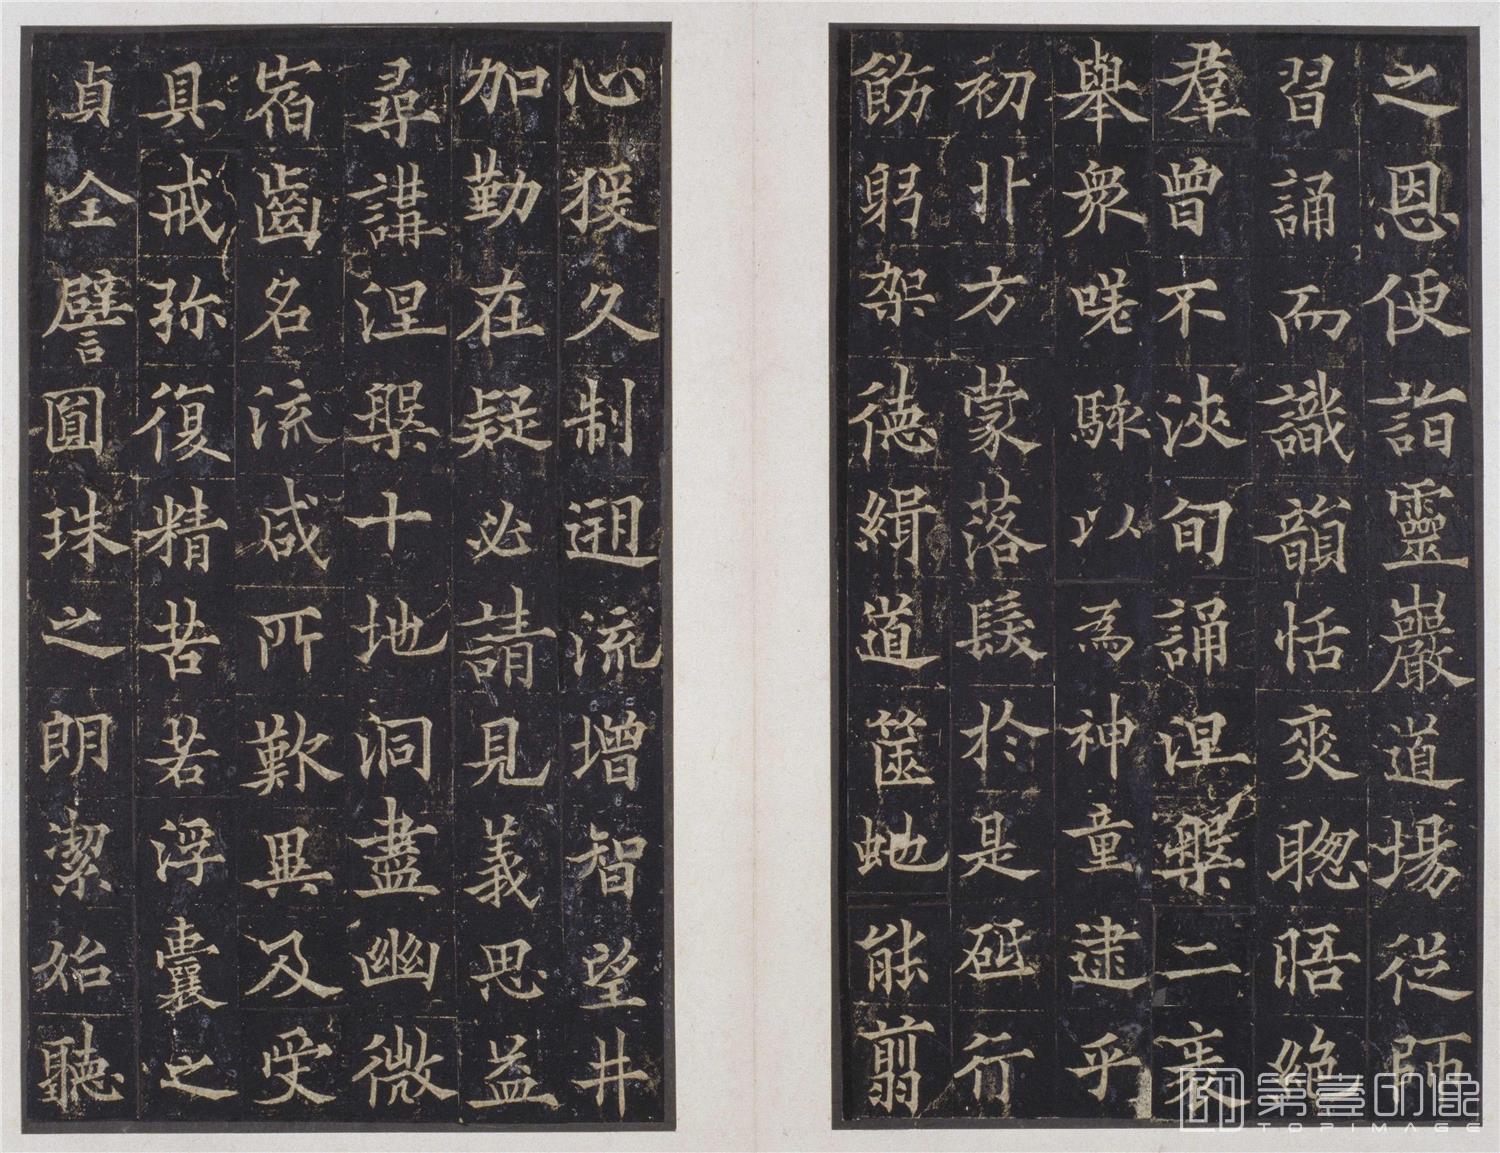 之恩便詣靈巖道場從師
習誦而識韻恬爽聰晤絶
羣曾不浹旬誦涅槃二袠
舉衆嗟駭以為神童逮乎
初卝方蒙落髮於是砥行
飭躬架德緝道篋虵能翦
心猨久制遡流增智望井
加勤在疑必請見義思益
尋講涅槃十地洞盡幽微
宿齒名流咸所歎異及受
具戒弥復精苦若浮囊之
貞全譬圓珠之朗潔始聽
第壹印像
TOPIMAGE